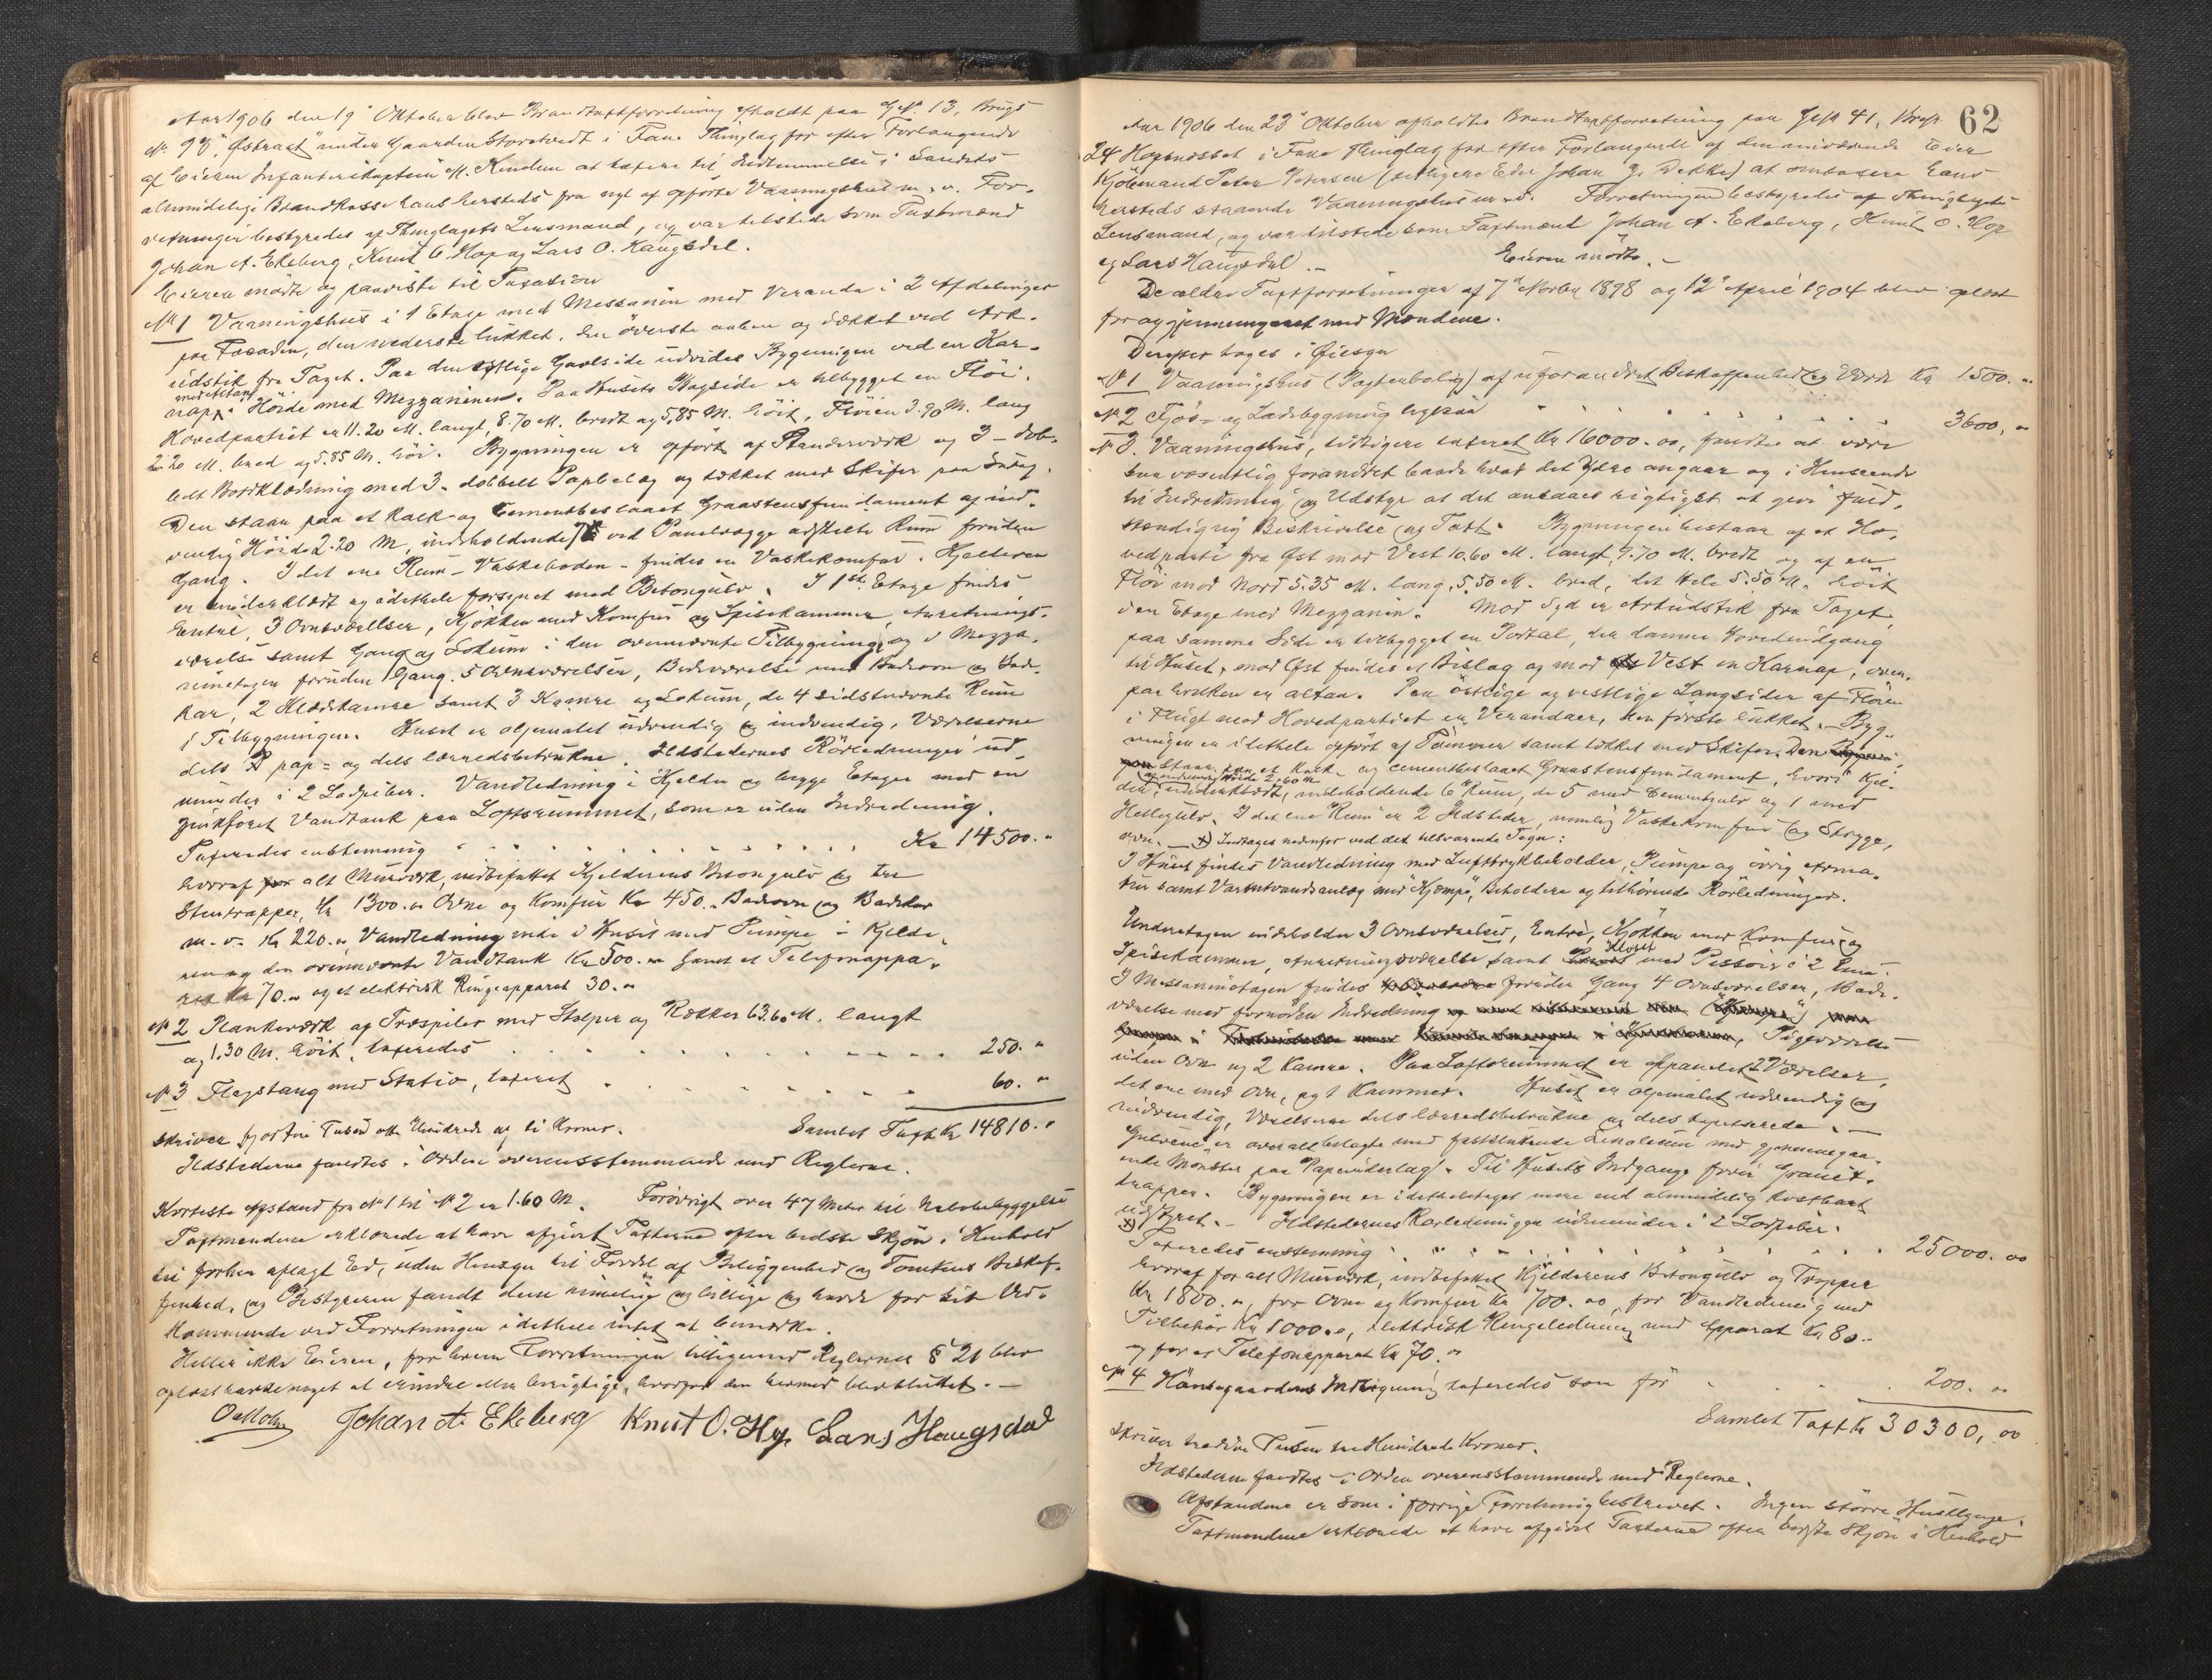 Aar 1906 den 19de Oktober blev Brandtaxtforretning afholdt paa G.No. 13, Brugs
No. 93, "Østraat" under Gaarden Storetvedt i Fane Thinglag for efter Forlangende
af Eieren Infanterikaptein M. Kindem at taxere til Indlemmelse i Landets
almindelige Brandkasse hans hersteds fra nyt af opførte Vaaningshus m. v. For-
retningen bestyredes af Thinglagets Lensmand, og var tilstede som Taxtmænd
Johan A. Ekeberg, Knut O. Hop og Lars O. Haugsdal.
Eieren mødte og paaviste til Taxation
No 1 Vaaningshus i 1 Etage med Messanin med Veranda i 2 Afdelinger
paa Facaden, den nederste lukket, den överste aaben og dækket ved Ark-
udstik fra Taget. Paa den östlige Gavlside udvides Bygningen ved en Kar-
nap med Altan i Höide med Mezzaninen. Paa Husets Bagside er tilbygget en Flöi.
Hovedpartiet er 11.20 M. langt, 8.70 M. bredt og 5,85 M. höit, Flöien 3.90 M. lang
2.20 M. bred og 5.85 M. höi. Bygningen er opfört af Standerværk og 3-dob-
belt Bordklædning med 3-dobbelt Papbelæg og tækket med Skifer paa
Den staar paa et Kalk- og Cementbeslaaet Graastensfundament af ind-
vendig Höide 2.20 M, indeholdende 7 ved Panelvægge adskilte Rum foruden
Gang. I det ene Rum - Vaskeboden - findes en Vaskekomfur. Kjelderen
er underklædt og idethele forsynet med Betongulv. I 1ste Etage findes
Entré, 3 Ovnsværelser, Kjökken med Komfur og Spisekammer, Anretnings-
værelse samt Gang og Lokum i den ovennævnte Tilbygning og i Mezza-
ninetagen foruden Gang, 5 Ovnsværelser, Badeværelse med Badeovn og Bade-
kar, 2 Klædekamre samt 3 Kamre og Lokum, de 4 sidstnævnte Rum
i Tilbygningen. Huset er oljemalet udvendig og indvendig, Værelserne
dels pap- og dels lærredsbetrukne. Ildstedernes Rörledninger ud-
munder i 2 Ladpiber. Vandledning i Kjelder og begge Etager med en
zinkforet Vandtank paa Loftsrummet, som er uden Indredning.
Taxeredes enstemmig Kr 14500.-
hvoraf for alt Murværk, indbefattet Kjelderens Betongulv og tre
Stentrapper, Kr 1300.- Ovne og Komfur Kr 450.- Badeovn og Badekar
m. v. Kr 220.-, Vandledning inde i Huset med Pumpe i Kjelde-
ren og den ovennævnte Vandtank Kr 500.- samt et Telefonappa-
rat Kr 70.- og et elektrisk Ringeapparat 30.-
No 2 Plankeværk af Træspiler med Stolper og Rækker 63.60 M. langt
og 1.30 M. höit, taxeredes 250.-
No 3 Flagstang med Stativ, taxeret 60.-
Samlet Taxt Kr 14810.-
skriver fjorten Tusend otte Hundrede og ti Kroner.
Ildstederne fandtes i Orden overensstemmende med Reglerne.
Korteste Afstand fra No 1 til No 2 er 1.60 M. Forövrigt over 47 Meter til Nabobebyggelse
Taxtmændene erklærede at have afgivet Taxterne efter bedste Skjön i Henhold
til forhen aflagt Ed, uden Hensyn til Fordel af Beliggenhed og Tomtens Beskaf-
fenhed, og Bestyreren fandt dem rimelige og billige og havde for sit Ved-
kommende ved Forretningen idethele intet at bemærke.
Heller ikke Eieren, for hvem Forretningen tilligemed Reglernes § 21 blev
oplæst havde noget at erindre eller berigtige, hvorfor den hermed blev sluttet.-
Johan A. Ekeberg Knut O. Hop Lars Haugsdal
62
Aar 1906 den 23de Oktober afholdtes Brandtaxtforretning paa G.No 41, Br.No.
24 Hopsnesset i Fane Thinglag for efter Forlangende af den nuværende Eier
Kjöbmand Peter Petersen (tidligere Eier Johan G. Dekke) at omtaxere hans
hersteds staaende Vaaningshus m. v. Forretningen bestyredes af Thinglagets
Lensmand, og var tilstede som Taxtmænd Johan A. Ekeberg, Knut O. Hop
og Lars Haugsdal.- Eieren mödte.-
De ældre Taxtforretninger af 7de Novbr 1898 og 12te April 1904 blev oplæst
for og gjennemgaaet med Mændene.
Derefter toges i Øiesyn
No 1 Vaaningshus (Pagterbolig) af uforandret Beskaffenhed og Værdi Kr 1500.-
No 2 Fjös- og Ladebygning ligesaa 3600.-
No 3. Vaaningshus, tidligere taxeret Kr 16000.00, fandtes at være
saa væsentlig forandret baade hvad det Ydre angaar og i Henseende
til Indredning og Udstyr at det ansaaes rigtigst at give fuld-
stændig ny Beskrivelse og Taxt. Bygningen bestaar af et Ho-
vedparti fra Øst mod Vest 10.60 M. langt, 9.70 M. bredt og af en
Flöi mod Nord 5.35 M. lang, 5.50 M. bred, det Hele 5.50 M. höit
i en Etage med Mezzanin. Mod Syd er Arkudstik fra Taget,
paa samme Side er tilbygget en Portal, der danner Hovedindgang
til Huset, mod Øst findes et Bislag og mod Vest en Karnap, oven-
paa hvilken er altan. Paa östlige og vestlige Langsider af Flöien
i Flugt med Hovedpartiet er Verandaer, den förste lukket. Byg-
ningen er idethele opfört af Tömmer samt tækket med Skifer. Den
staar paa et Kalk- og cementbeslaaet Graastensfundament, hvori Kjel-
der, af indvendig Höide 2.60 m underklædt, indeholdende 6 Rum, de 5 med Cementgulv og 1 med
Hellegulv. I det ene Rum er 2 Ildsteder, nemlig Vaskekomfur og Stryge-
ovn.- x) Indtages nedenfor ved det tilsvarende Tegn:
I Huset findes Vandledning med Lufttrykbeholder, Pumpe og övrig Arma-
tur samt Varmtvandsanlæg med "Kjæmpe", Beholdere og tilhörende Rörledninger.
Underetagen indeholder 3 Ovnsværelser, Entré, Kjökken med Komfur og
Spisekammer, Anretningsværelse samt Kloset med Pissoir i 2 Rum.
I Messaninetagen findes foruden Gang 4 Ovnsværelser, Bade-
værelse med fornöden Indredning, Pigeværelse
uden Ovn og 2 Kamre. Paa Loftsrummet er afpanelet 2 Værelser,
det ene med Ovn, og 1 Kammer. Huset er oljemalet udvendig og
indvendig, Værelserne dels lærredsbetrukne og dels tapetserede.-
Gulvene er overalt belagte med fastsluttende Linoleum med gjennemgaa-
ende Mönster paa Papunderlag. Til Husets Indgange förer Granit-
trapper. Bygningen er idetheletaget mere end almindelig kostbart
udstyret.- Ildstedernes Rörledninger udmunder i 2 Ladpiber.
x)
Taxeredes enstemmig 25000.00
hvoraf for alt Murværk, indbefattet Kjelderens Betongulv og Trapper
Kr 1800.-, for Ovne og Komfur Kr 700.00, for Vandledning med
Tilbehör Kr 1000.-, elektrisk Ringeledning med Apparat Kr 80.-
og for et Telefonapparat Kr 70.-
No 4 Hönsegaardens Indhegning taxeredes som för 200.-
Samlet Taxt Kr 30300,00
skriver tredive Tusen tre Hundrede Kroner.
Ildstederne fandtes i Orden overensstemmende med Reglerne.
Afstandene er som i forrige Forretning beskrevet. Ingen större Husklynge.
Taxtmændene erklærede at have afgivet Taxterne efter bedste Skjön i Henhold